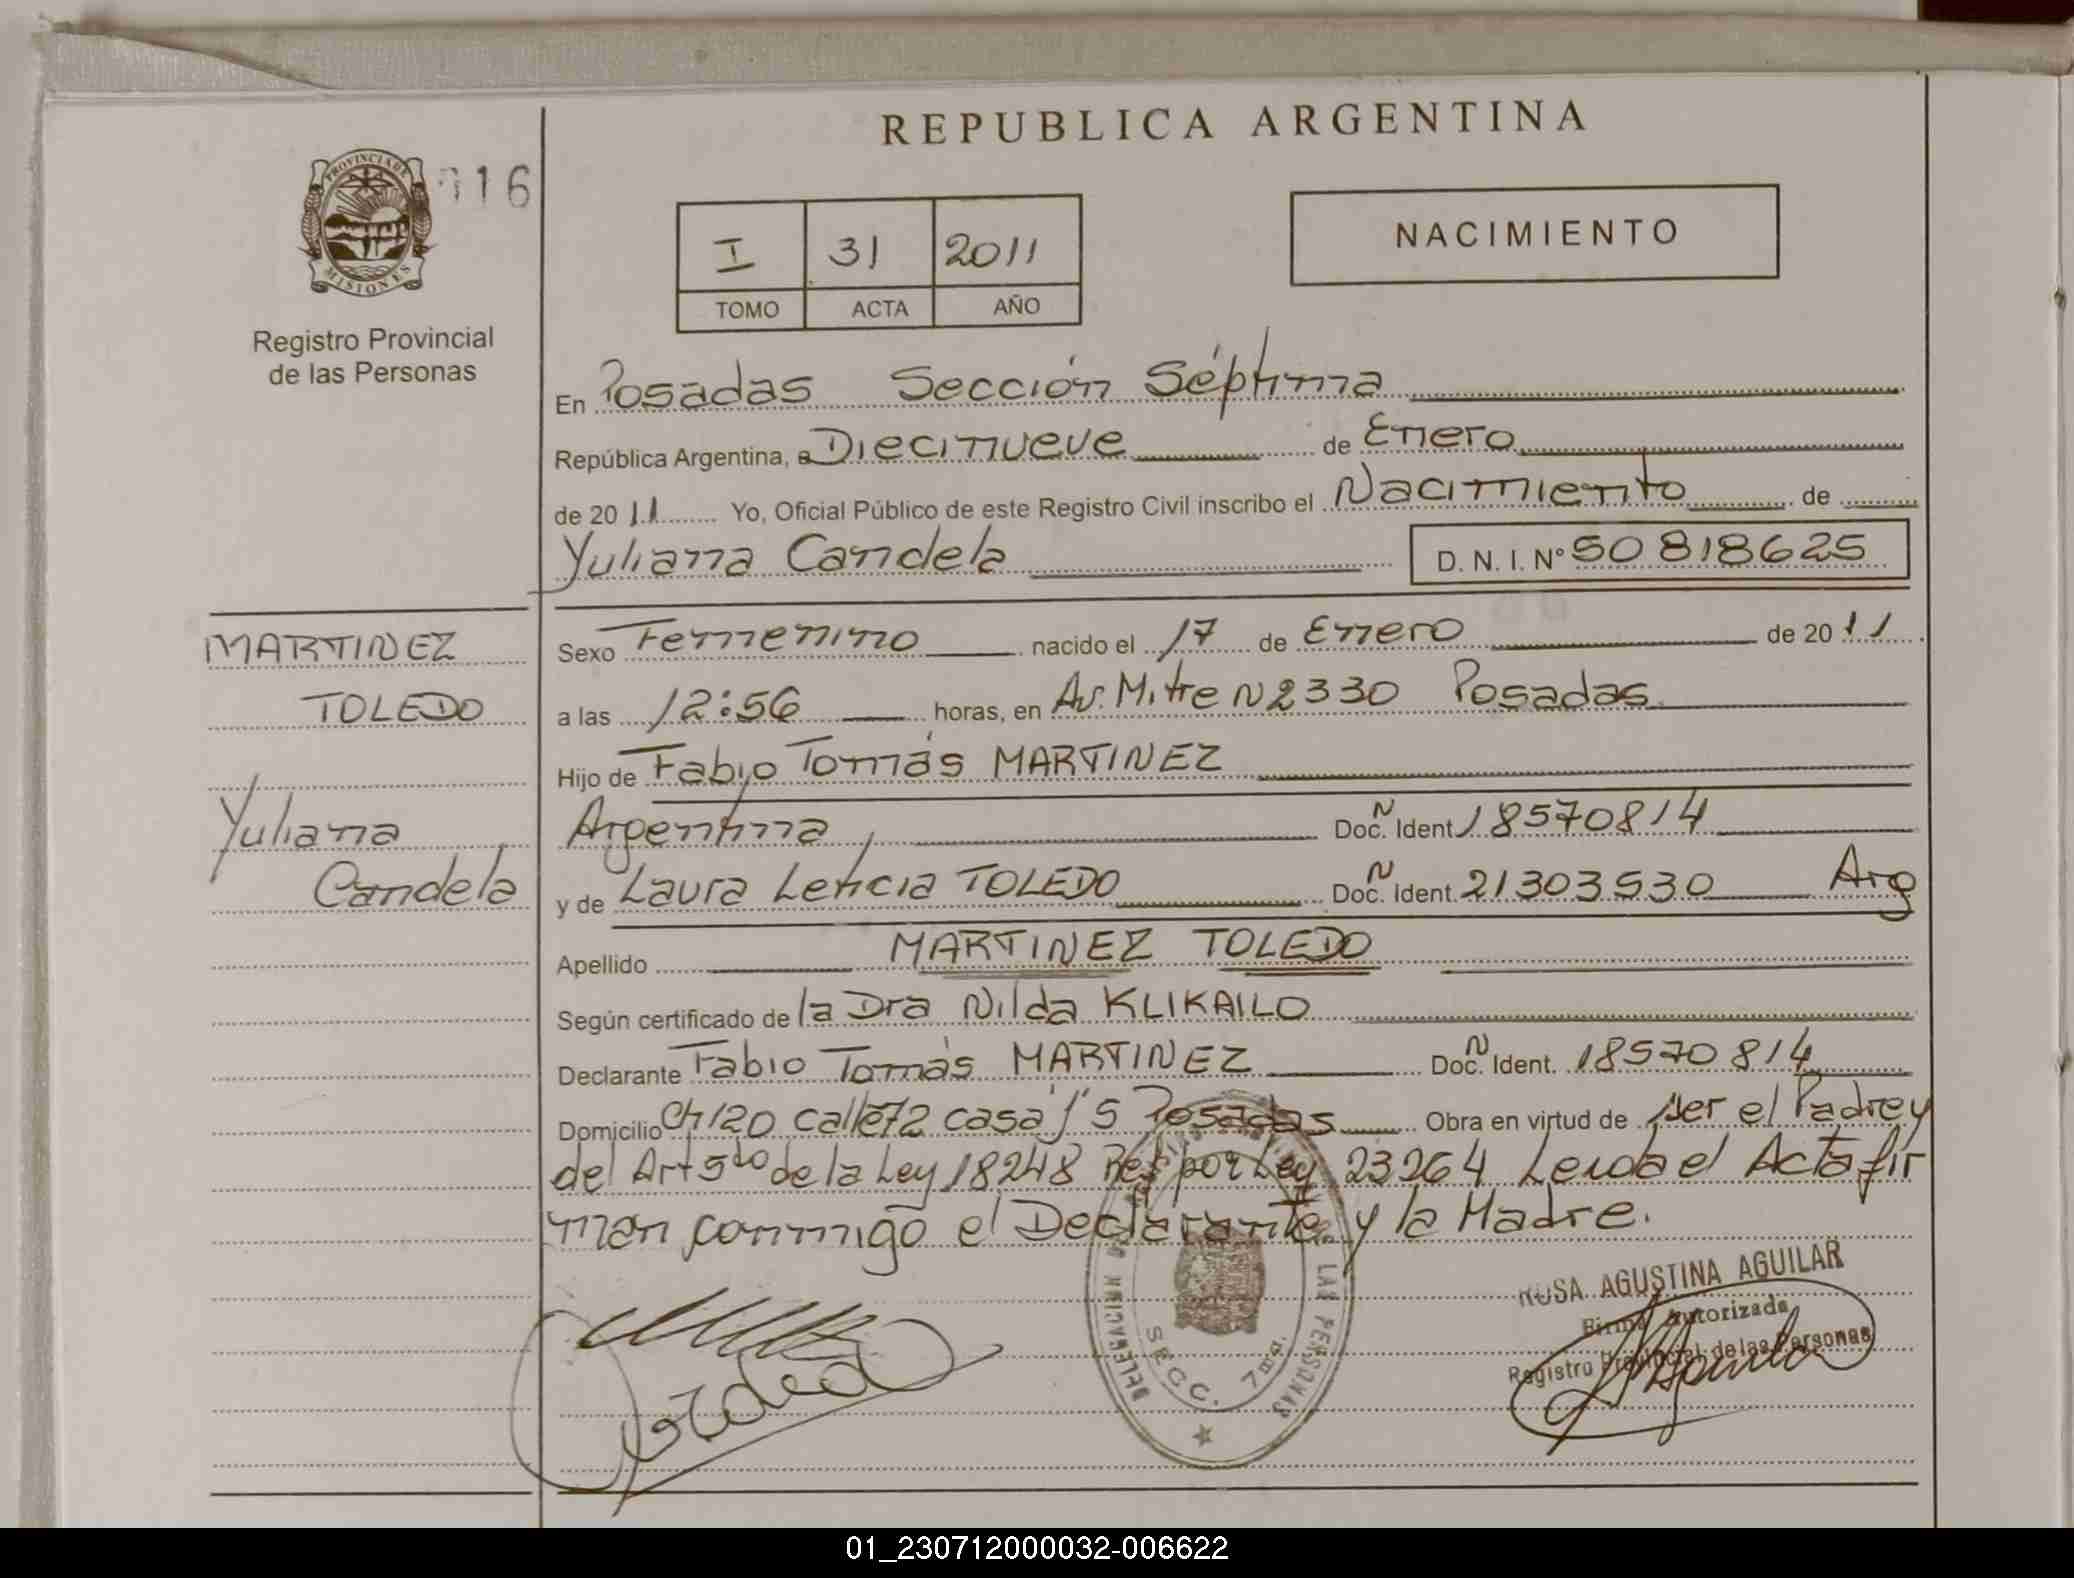 REPUBLICA ARGENTINA
PROVINCIA DE
MISIONES
016
Registro Provincial
de las Personas
I 31 2011
TOMO ACTA AÑO
NACIMIENTO
En Posadas Sección Séptima
República Argentina, a Diecinueve de Enero
de 2011 Yo, Oficial Público de este Registro Civil inscribo el Nacimiento de
Yuliana Candela D. N. I. Nº 50 818625
MARTINEZ
TOLEDO
Yuliana
Candela
Sexo Femenino nacido el 17 de Enero de 2011
a las 12:56 horas, en Av. Mitre N 2330 Posadas
Hijo de Fabio Tomás MARTINEZ
Argentina Doc. Ñ Ident 18570814
y de Laura Leticia TOLEDO Doc. Ñ Ident. 21303530 Arg
Apellido MARTINEZ TOLEDO
Según certificado de la Dra Nilda KLIKAILO
Declarante Fabio Tomás MARTINEZ Doc. Ñ Ident. 18570814
Domicilio Ch 120 calle 72 casa 5 Posadas Obra en virtud de ser el Padre y
del Art 5to de la Ley 18248 Ref por Ley 23264 Leida el Acta fir
man conmigo el Declarante y la Madre.
ROSA AGUSTINA AGUILAR
Firma Autorizada
Registro Provincial de las Personas
DELEGACION
LAS PERSONAS
SECC. 7ma.
01_230712000032-006622